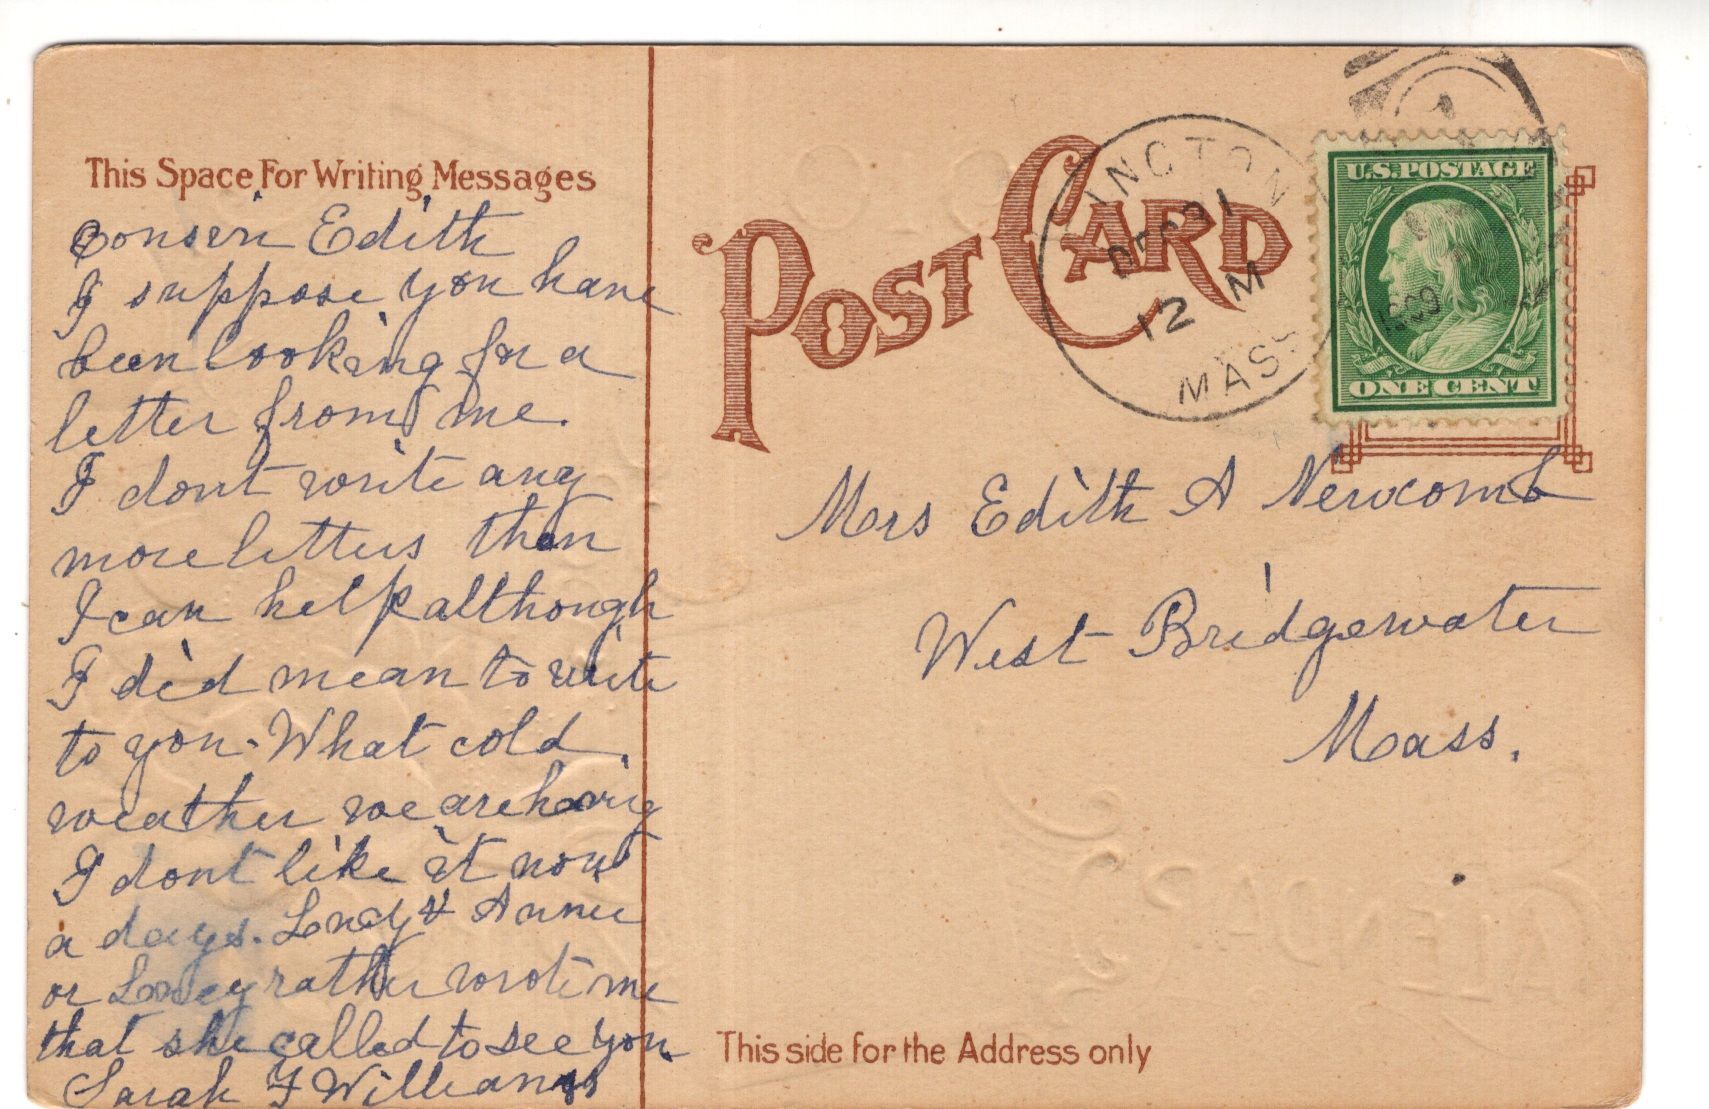 This Space For Writing Messages
Consin Edith
I suppose you have
been looking for a
letter from me.
I dont write any
more letters than
I can help although
I did mean to write
to you. What cold
weather we are having
I dont like it now
a days. Lucy & Annie
or Lucy rather wrote me
that she called to see you
Sarah F Williams
POST CARD
INGTON
DEC 31
12 M
1909
MASS
U.S. POSTAGE
ONE CENT
Mrs Edith A Newcomb
West Bridgewater
Mass.
This side for the Address only